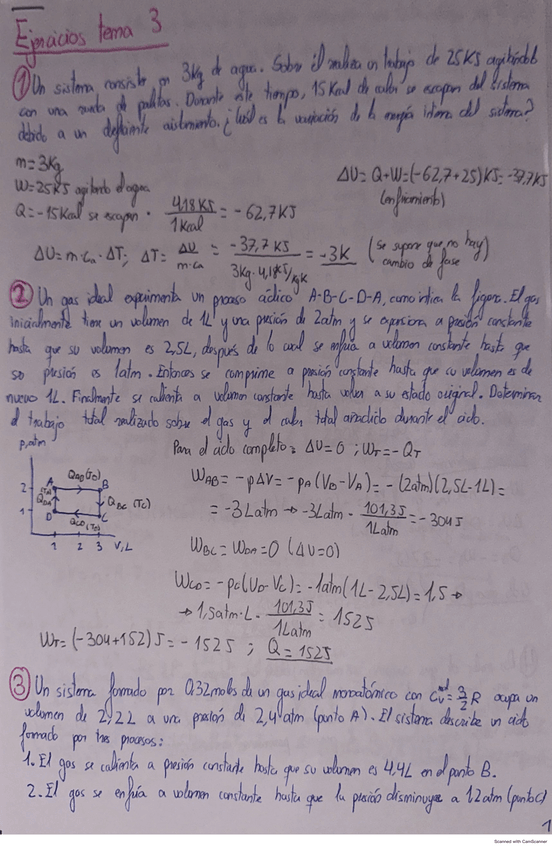 Ejercicios tema 3
① Un sistema consiste en 3Kg de agua. Sobre él realiza un trabajo de 25KJ agitándola
con una rueda de paletas. Durante este tiempo, 15Kcal de calor se escapan del sistema
debido a un deficiente aislamiento. ¿Cuál es la variación de la energía interna del sistema?
m = 3Kg
W = 25KJ agitando el agua
ΔU = Q + W = (-62,7+25)KJ = -37,7KJ
(enfriamiento)
Q = -15Kcal se escapan · 4,18KJ / 1Kcal = -62,7KJ
ΔU = m·Ca·ΔT; ΔT = ΔU / m·Ca = -37,7KJ / 3Kg·4,18KJ/KgK = -3K (se supone que no hay
cambio de fase)
② Un gas ideal experimenta un proceso cíclico A-B-C-D-A, como indica la figura. El gas
inicialmente tiene un volumen de 1L y una presión de 2atm y se expansiona a presión constante
hasta que su volumen es 2,5L, después de lo cual se enfría a volumen constante hasta que
su presión es 1atm. Entonces se comprime a presión constante hasta que su volumen es de
nuevo 1L. Finalmente se calienta a volumen constante hasta volver a su estado original. Determinar
el trabajo total realizado sobre el gas y el calor total añadido durante el ciclo.
p,atm
Para el ciclo completo = ΔU = 0 ; WT = -QT
2
1
A
B
C
D
1 2 3 V,L
WAB = -pΔV = -pA(VB - VA) = -(2atm)(2,5L-1L) =
= -3Latm → -3Latm · 101,3J / 1Latm = -304J
WBC = WDA = 0 (ΔV=0)
WCD = -pC(VD - VC) = -1atm(1L-2,5L) = 1,5 →
→ 1,5atm·L · 101,3J / 1Latm = 152J
WT = (-304+152)J = -152J ; Q = 152J
③ Un sistema formado por 0,32moles de un gas ideal monoatómico con Cv = 3/2 R ocupa un
volumen de 2,2L a una presión de 2,4atm (punto A). El sistema describe un ciclo
formado por tres procesos:
1. El gas se calienta a presión constante hasta que su volumen es 4,4L en el punto B.
2. El gas se enfría a volumen constante hasta que la presión disminuye a 1,2atm (punto C)
1
Scanned with CamScanner